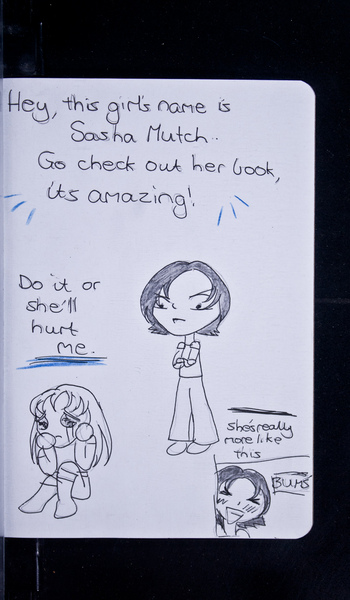 Hey, this girl's name is
Sasha Mutch..
Go check out her book,
its amazing!
Do it or
she'll
hurt
me.
she's really
more like
this
BUMS